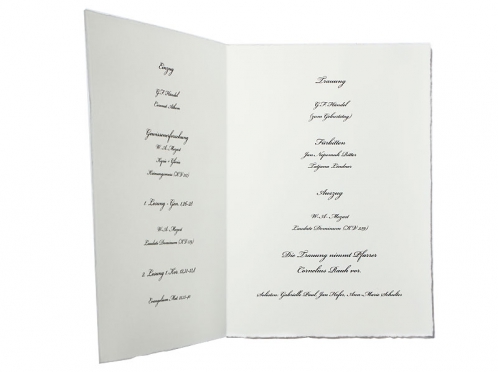 Einzug
G.F. Händel
Gewissenserforschung
W. A. Mozart
Kyrie + Gloria
1. Lesung - Gen. 1,26-28
W. A. Mozart
Laudate Dominum (KV 339)
2. Lesung 1 Kor. 12,31-13,8
Trauung
G.F. Händel
(zum Geburtstag)
Fürbitten
Jan Nepomuk Ritter
Tatjana Lindner
Auszug
W. A. Mozart
Laudate Dominum (KV 339)
Die Trauung nimmt Pfarrer
Cornelius Rauh vor.
Solisten: Gabrielle Paul, Jan Hofer, Ann Marie Schuler